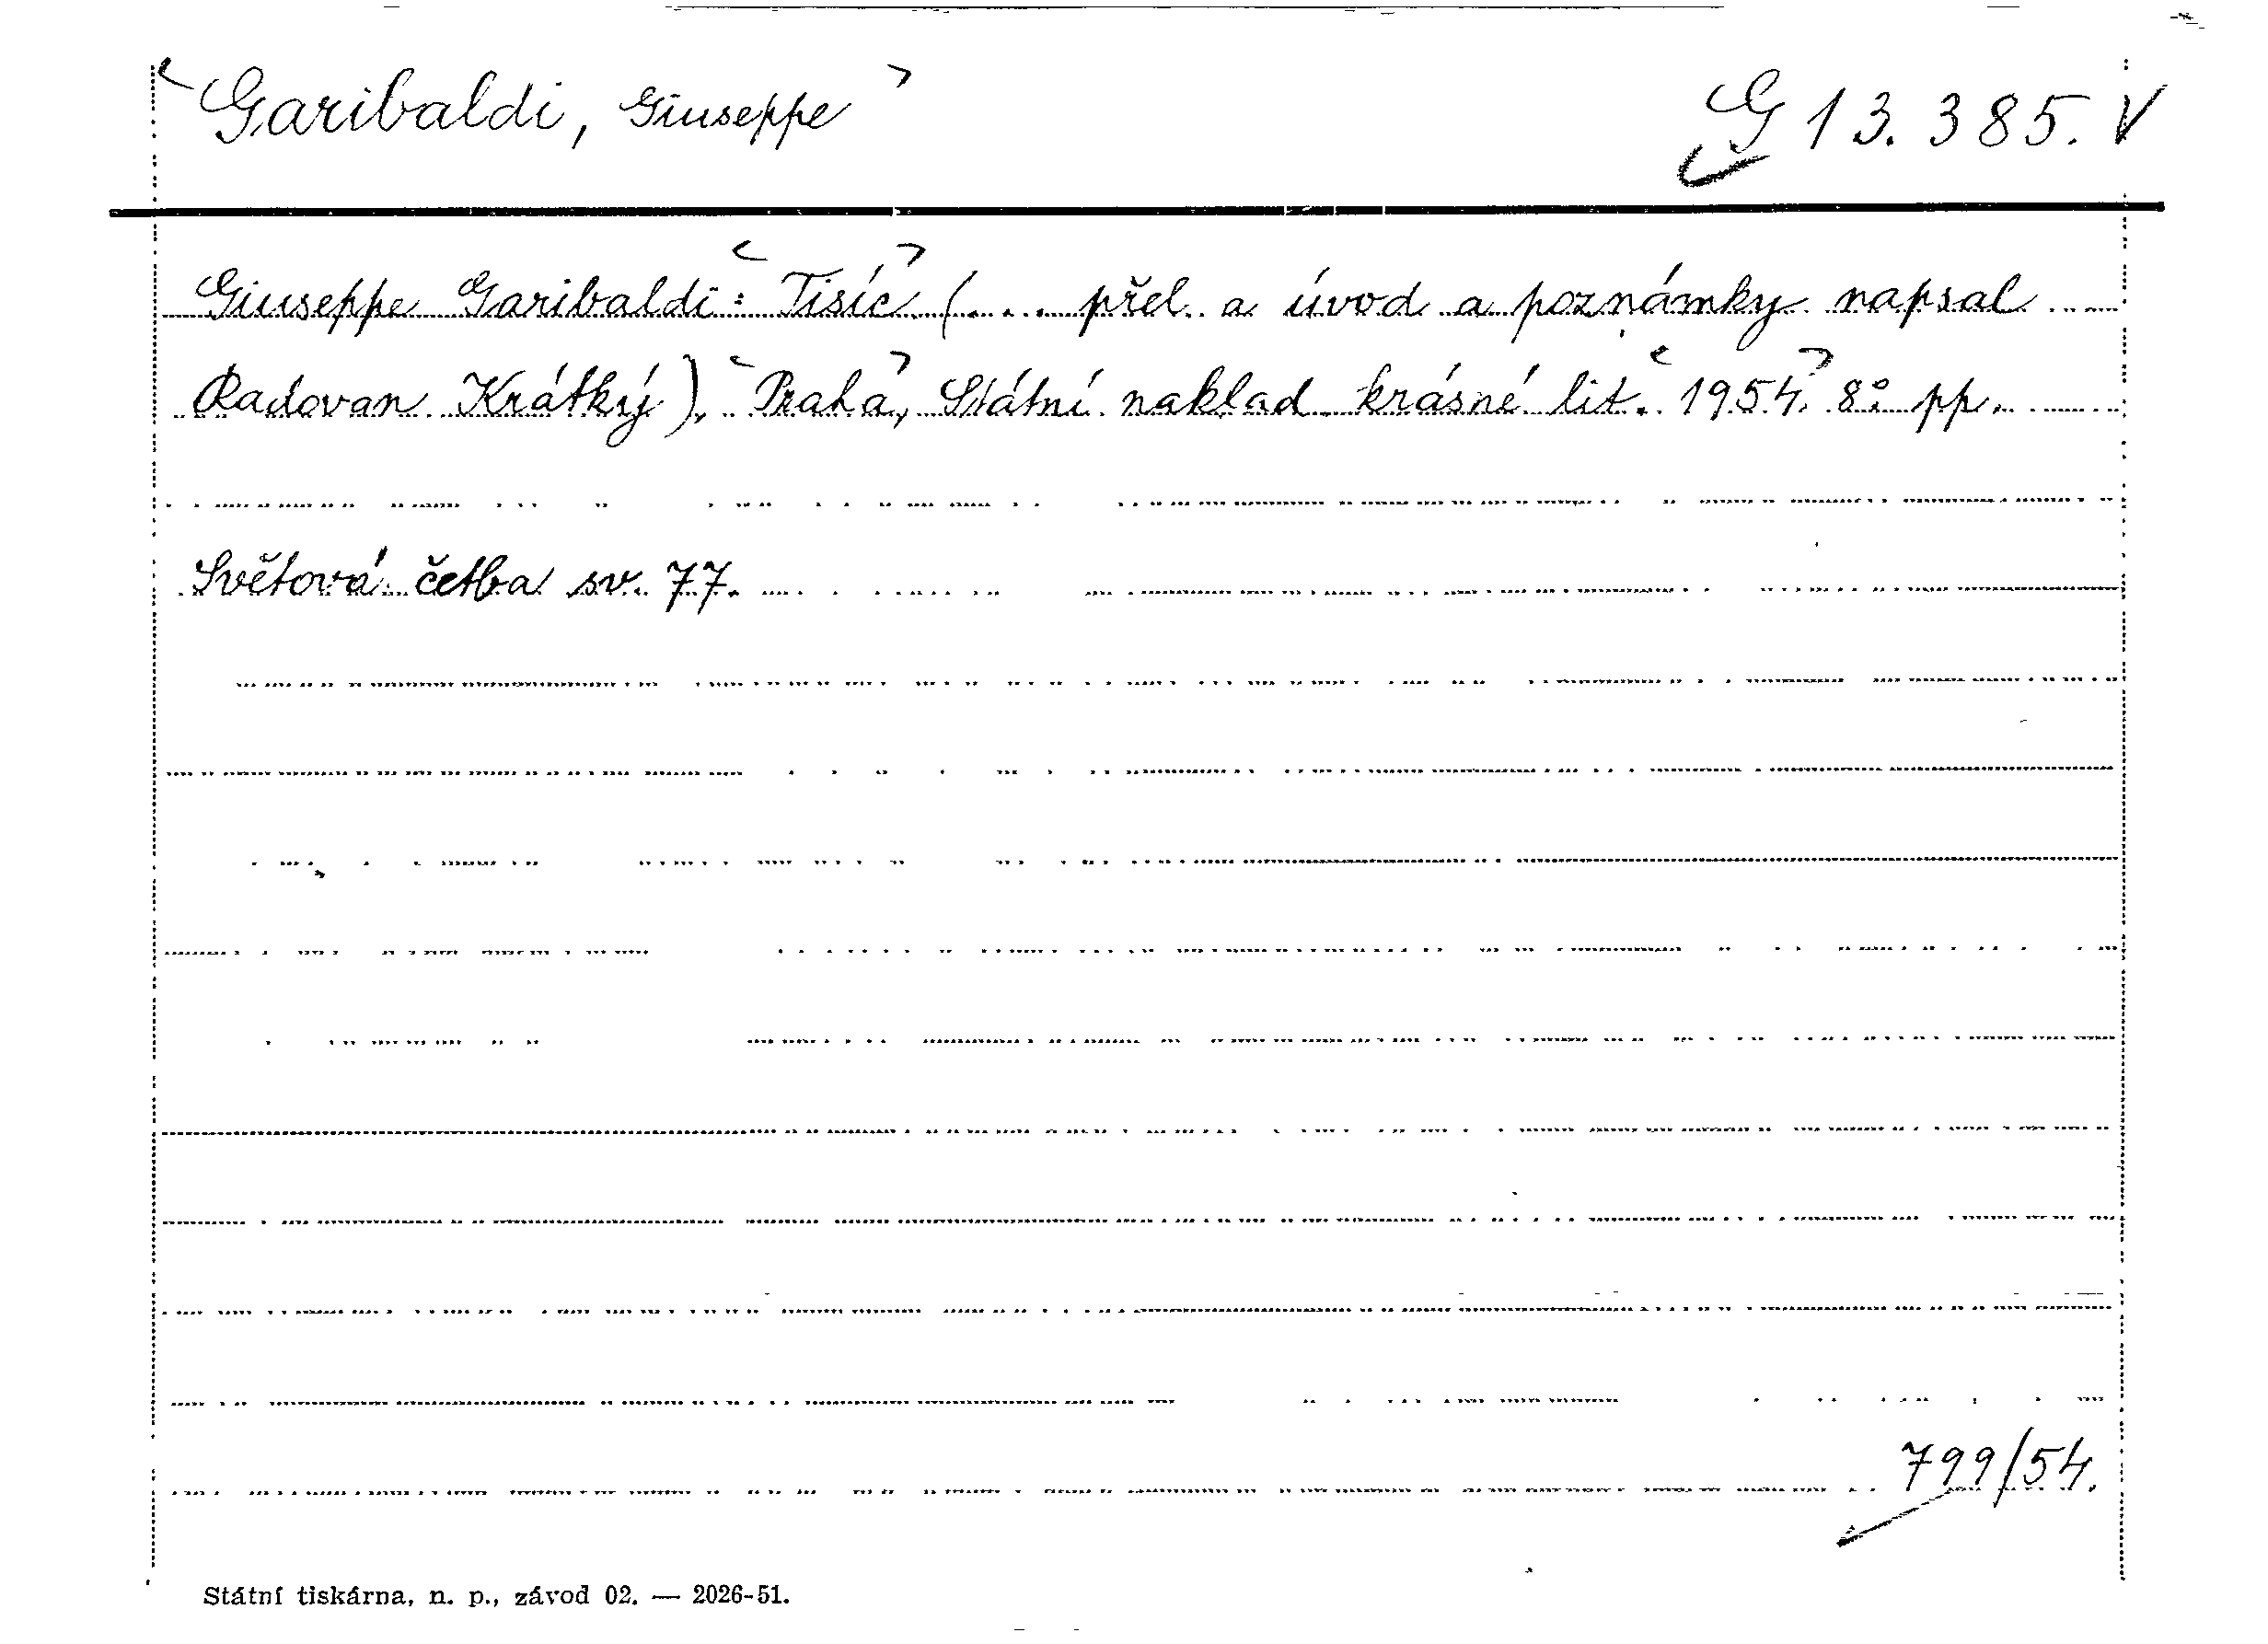 Garibaldi, Giuseppe
G 13.385. V
Giuseppe Garibaldi: Tisíc (... přel. a úvod a poznámky napsal
Radovan Krátký). Praha, Státní naklad. krásné lit. 1954. 8° pp.
Světová četba sv. 77.
799/54.
Státní tiskárna, n. p., závod 02. — 2026-51.